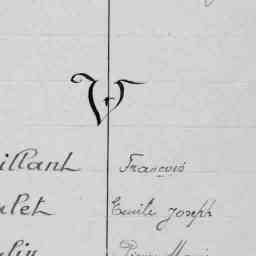 V
illant François
ulet Emile Joseph
lin Pierre Marie